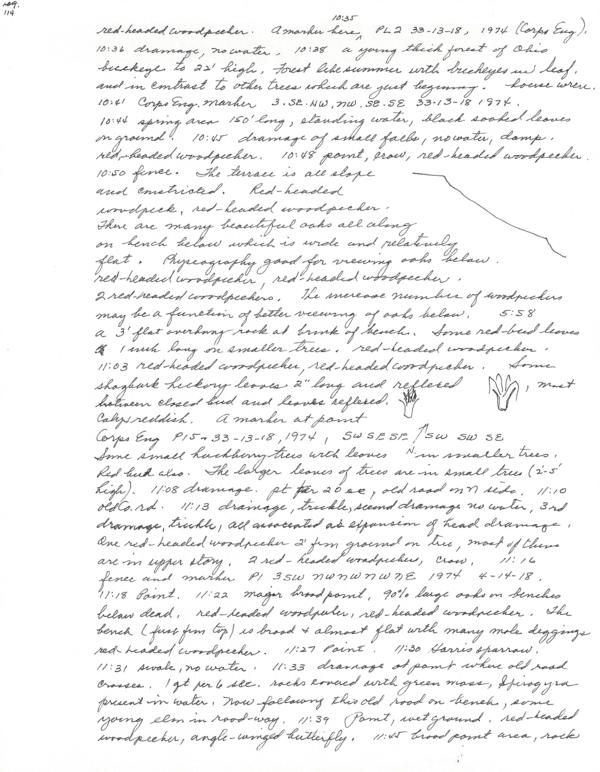 114
10:35
red-headed woodpecker. A marker here, PL2 33-13-18, 1974 (Corps Eng).
10:36 drainage, no water. 10:38 a young thick forest of Ohio
buckeye to 22' high. Forest like summer with buckeyes in leaf.
and in contrast to other trees which are just beginning. house wren.
10:41 Corps Eng. marker 3. SE. NW, NW. SE. SE 33-13-18 1974.
10:44 spring area 150' long, standing water, black soaked leaves
on ground. 10:45 drainage of small falls, no water, damp.
red-headed woodpecker. 10:48 point, crow, red-headed woodpecker.
10:50 fence. The terrace is all slope
and constricted. Red-headed
woodpeck, red-headed woodpecker.
There are many beautiful oaks all along
on bench below which is wide and relatively
flat. Physeography good for viewing oaks below.
red-headed woodpecker, red-headed woodpecker.
2 red-headed woodpeckers. The increase number of woodpeckers
may be a function of better viewing of oaks below. 5:58
a 3' flat overhang rock at brink of bench. Some red-bud leaves
1 inch long on smaller trees. red-headed woodpecker.
11:03 red-headed woodpecker, red-headed woodpecker. Some
shagbark hickory leaves 2" long and reflexed , most
between closed bud and leaves reflexed.
Calyx reddish. A marker at point
Corps Eng P15 33-13-18, 1974, SW SE SE ↑ SW SW SE
Some small hackberry trees with leaves N in smaller trees.
Red bud also. The larger leaves of trees are in small trees (2-5'
high). 11:08 drainage. pt per 20 sec, old road on N side. 11:10
old Co. rd. 11:13 drainage, trickle, second drainage no water, 3rd
drainage, trickle, all associated as expansion of head drainage.
One red-headed woodpecker 2' from ground on tree, most of them
are in upper story. 2 red-headed woodpecker, crow. 11:16
fence and marker P1 3 SW NW NW NW NE 1974 4-14-18.
11:18 Point. 11:22 major broad point, 90% large oaks on benches
below dead. red-headed woodpecker, red-headed woodpecker. The
bench (first from top) is broad & almost flat with many mole diggings
red-headed woodpecker. 11:27 Point. 11:30 Harris sparrow.
11:31 swale, no water. 11:33 drainage at point where old road
crosses. 1 qt per 6 sec. rocks covered with green moss, Spirogyra
present in water. Now following this old road on bench, some
young elm in road-way. 11:39 Point, wet ground. red-headed
woodpecker, angle-winged butterfly. 11:45 broad point area, rock